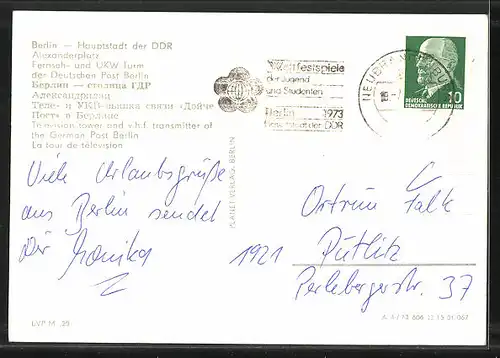 Berlin — Hauptstadt der DDR
Alexanderplatz
Fernseh- und UKW Turm
der Deutschen Post Berlin
Берлин — столица ГДР
Александрплац
Теле- и УКВ-вышка связи «Дойче
Пост» в Берлине
Television tower and v.h.f. transmitter of
the German Post Berlin
La tour de télévision
Weltfestspiele
der Jugend
und Studenten
Berlin 1973
Hauptstadt der DDR
NEUBRANDENBURG
DEUTSCHE
DEMOKRATISCHE REPUBLIK
10
PLANET-VERLAG, BERLIN
Viele Urlaubsgrüße
aus Berlin sendet
Dir Monika
1921
Ortrun Falk
Putlitz
Perlebergerstr. 37
EVP M -,20